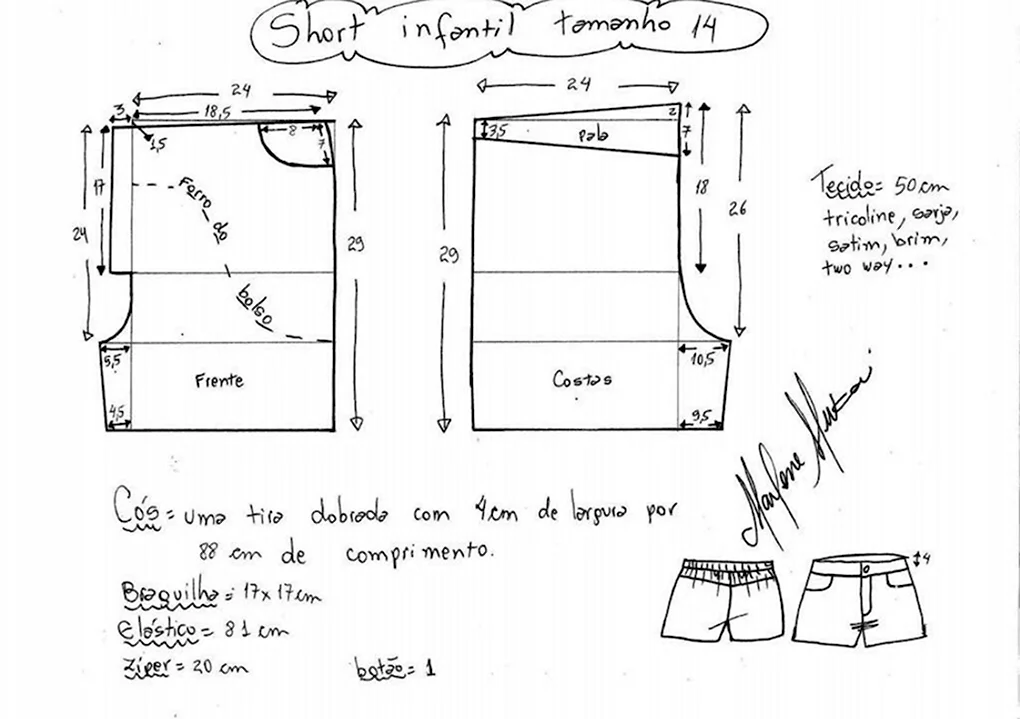 Short infantil tamanho 14
24
18,5
3
1,5
8
7
17
24
29
Forro do bolso
5,5
4,5
Frente
24
2
3,5
Pala
7
18
26
29
10,5
9,5
Costas
Tecido= 50 cm
tricoline, sarja,
setim, brim,
two way...
Marlene Mukai
Cós= uma tira dobrada com 4cm de largura por
88 cm de comprimento.
Braguilha= 17x17cm
Elástico= 81 cm
Zíper= 20 cm
botão= 1
4